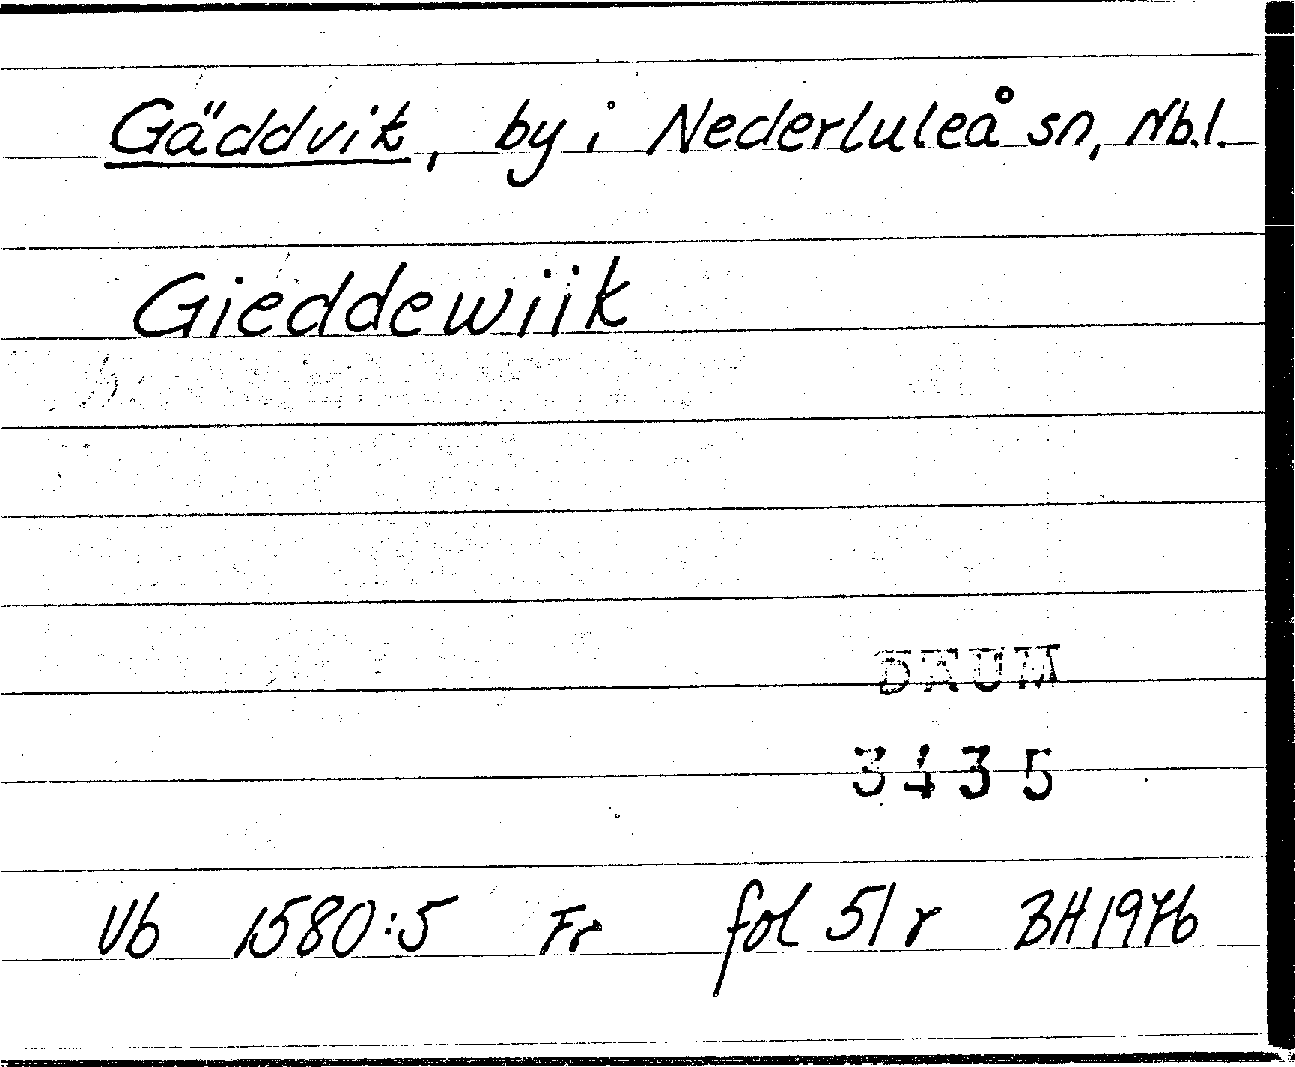 Gäddvik, by i Nederluleå sn, Nb.l.
Gieddewiik
DAUM
3435
Vb 1580:5 Fr fol 51 r BH 1976